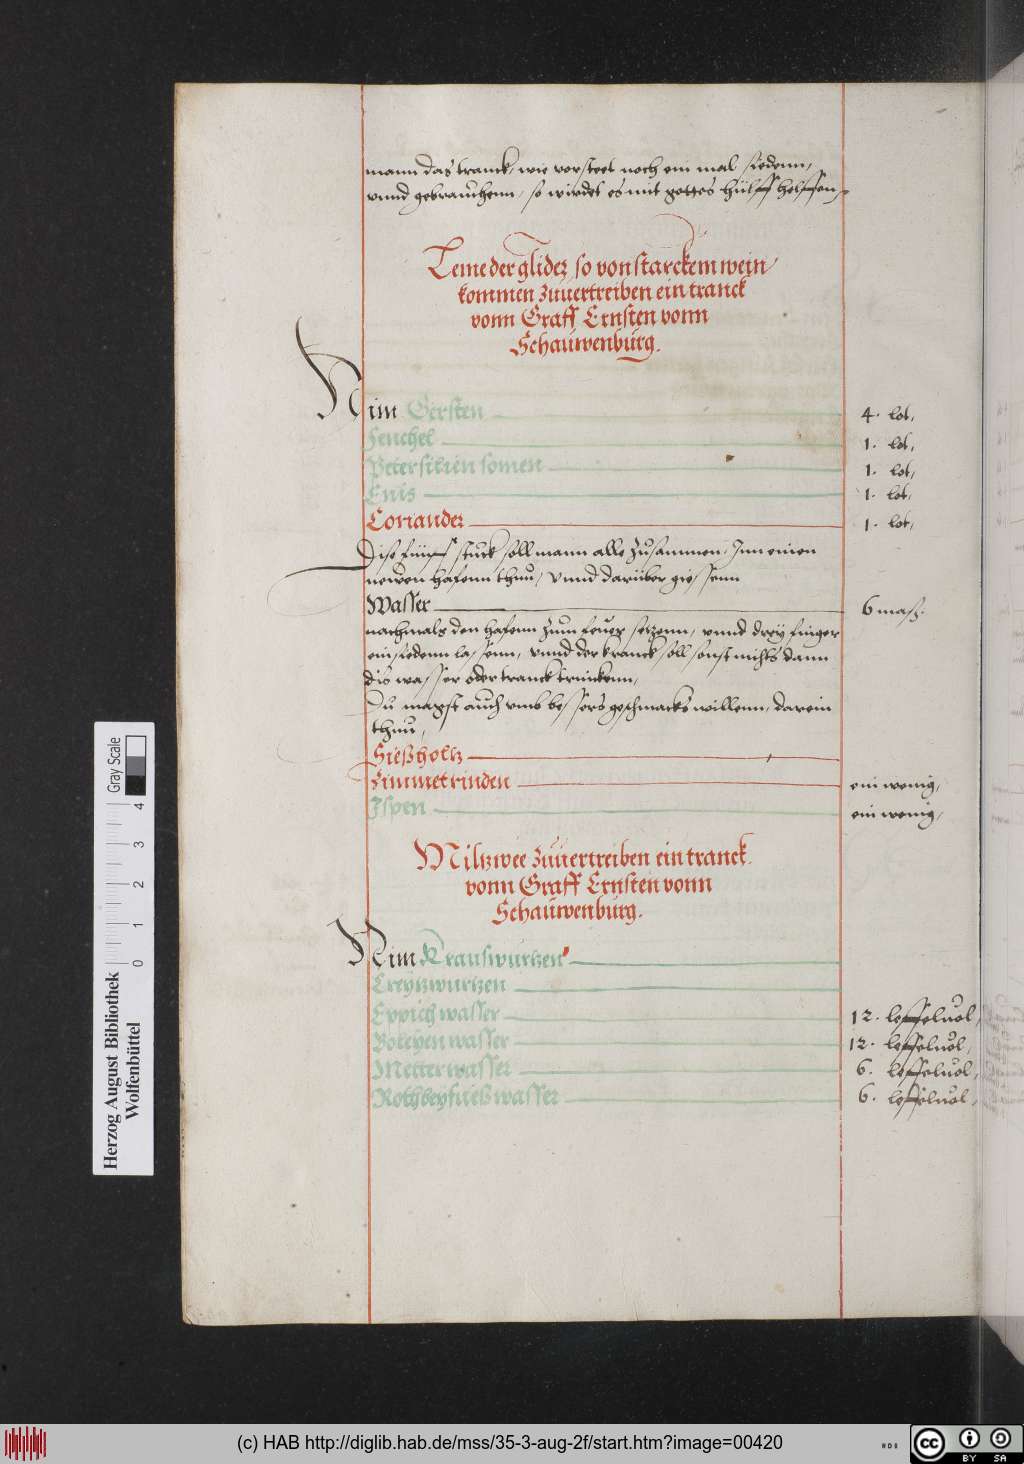 mann das tranck, wie vorsteet noch ein mal siedenn,
vnnd gebrauchenn, so wirdet es mit gottes hülff helffen
Leme der glider so von starckem wein
kommen zuuertreiben ein tranck
vonn Graff Ernsten vonn
Schauwenburg.
Nim Gersten 4. lot,
Fenchel 1. lot,
Petersilien somen 1. lot,
Enis 1. lot,
Coriander 1. lot,
Dise fünff stuck soll mann alle zusammen, Inn einen
newen hafenn thuu, vnnd darüber giessenn
Wasser 6 mass.
nachmals den hafenn zum feuer setzenn, vnnd drey finger
ein siedenn lassenn, vnnd der kranck soll sonst nichts dann
dis wasser oder tranck trinckenn,
Du magst auch vmb bessers geschmacks willenn, darein
thuu,
Siessholtz
Zimmetrinden ein wenig,
Ispen ein wenig,
Miltzwee zuuertreiben ein tranck
vonn Graff Ernsten vonn
Schauwenburg.
Nim Krauswurtzen
Creytzwurtzen
Eppich wasser 12. leffeluol,
Boleyen wasser 12. leffeluol,
Metter wasser 6. leffeluol,
Rothbeyfuess wasser 6. leffeluol,
Herzog August Bibliothek
Wolfenbüttel
0 1 2 3 4
Gray Scale
(c) HAB http://diglib.hab.de/mss/35-3-aug-2f/start.htm?image=00420
cc BY SA